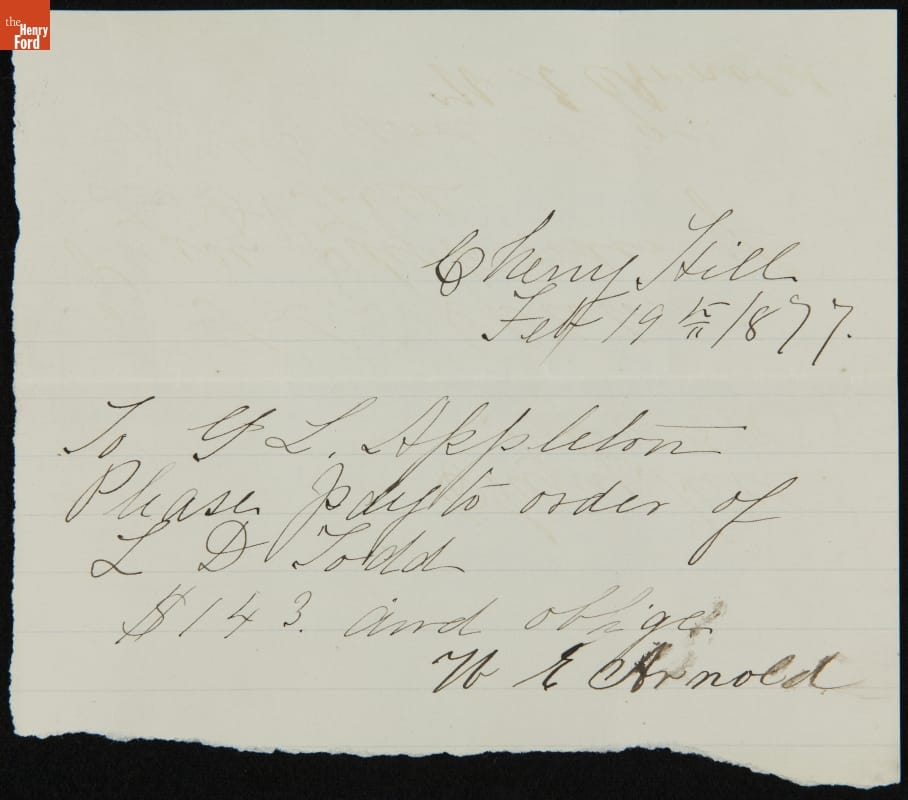 the
Henry
Ford
Cherry Hill
Feb 19th 1877.
To G L. Appleton
Please pay to order of
L D Todd
$143. and oblige
W E Arnold